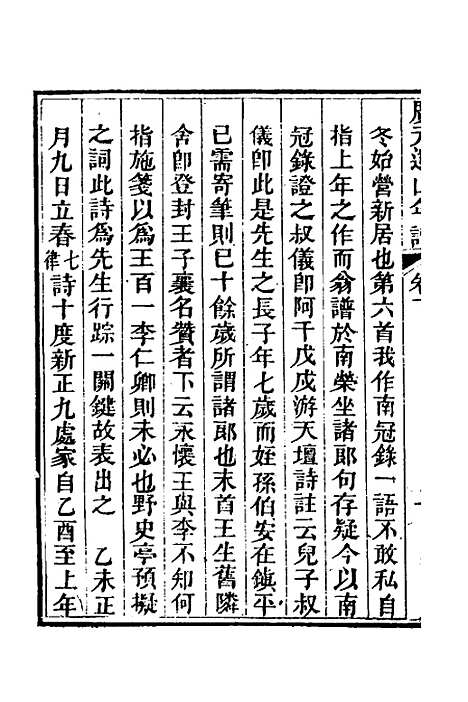 冬始營新居也第六首我作南冠錄一語不敢私自
指上年之作而翁譜於南榮坐諸郎句存疑今以南
冠錄證之叔儀卽阿千戊戌游天壇詩註云兒子叔
儀卽此是先生之長子年七歲而姪孫伯安在鎮平
已需寄筆則已十餘歲所謂諸郎也末首王生舊隣
舍卽登封王子襄名贊者下云永懷王與李不知何
指施箋以爲王百一李仁卿則未必也野史亭預擬
之詞此詩爲先生行踪一關鍵故表出之　乙未正
月九日立春七律詩十度新正九處家自乙酉至上年